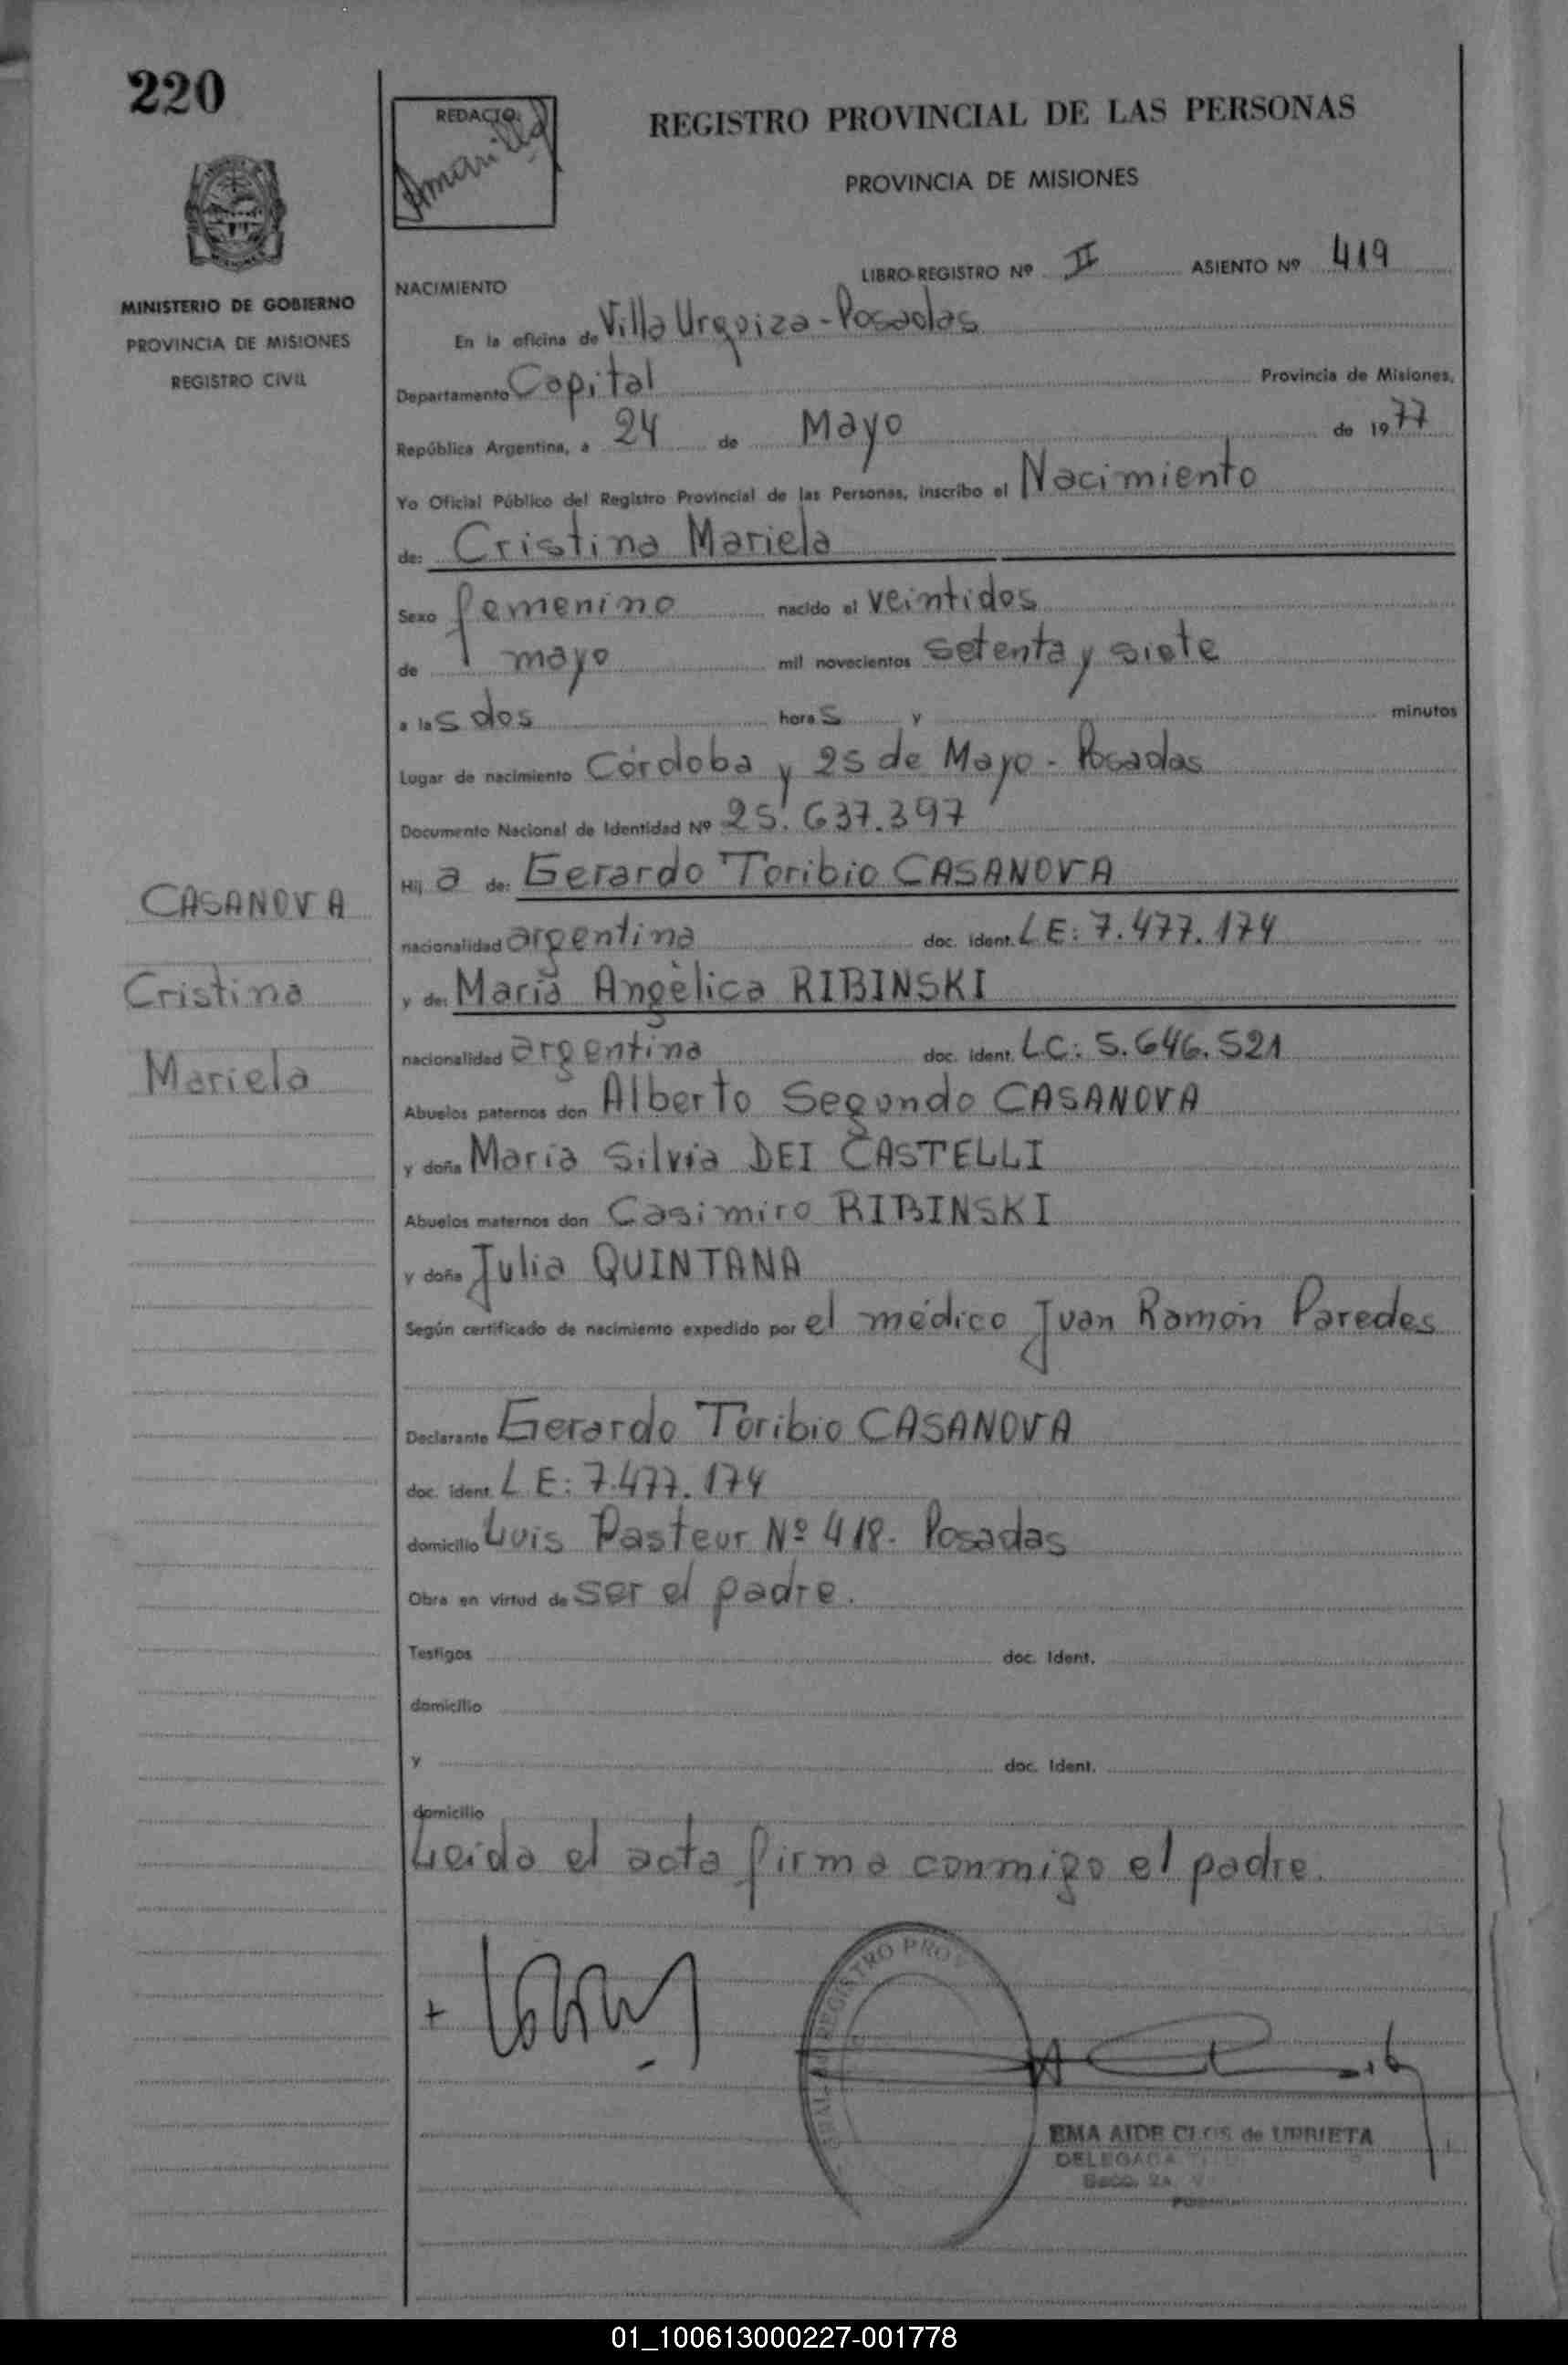 220
REDACTO:
Amarilla
REGISTRO PROVINCIAL DE LAS PERSONAS
PROVINCIA DE MISIONES
MINISTERIO DE GOBIERNO
PROVINCIA DE MISIONES
REGISTRO CIVIL
LIBRO-REGISTRO Nº II ASIENTO Nº 419
NACIMIENTO
En la oficina de Villa Urquiza - Posadas
Departamento Capital Provincia de Misiones,
República Argentina, a 24 de Mayo de 1977
Yo Oficial Público del Registro Provincial de las Personas, inscribo el Nacimiento
de: Cristina Mariela
Sexo femenino nacido el veintidos
de mayo mil novecientos setenta y siete
a las dos horas y minutos
Lugar de nacimiento Córdoba y 25 de Mayo - Posadas
Documento Nacional de Identidad Nº 25.637.397
Hija de: Gerardo Toribio CASANOVA
CASANOVA
nacionalidad argentina doc. ident. LE: 7.477.174
Cristina
y de: María Angèlica RIBINSKI
nacionalidad argentina doc. ident. LC: 5.646.521
Mariela
Abuelos paternos don Alberto Segundo CASANOVA
y doña María Silvia DEI CASTELLI
Abuelos maternos don Casimiro RIBINSKI
y doña Julia QUINTANA
Según certificado de nacimiento expedido por el médico Juan Ramón Paredes
Declarante Gerardo Toribio CASANOVA
doc. ident. L E: 7.477.174
domicilio Luis Pasteur Nº 418- Posadas
Obra en virtud de ser el padre.
Testigos doc. Ident.
domicilio
y doc. Ident.
domicilio
Leída el acta firma conmigo el padre.
REGISTRO PROV
EMA AIDE CLOS de URRIETA
DELEGADA
Secc. 2a.
01_100613000227-001778